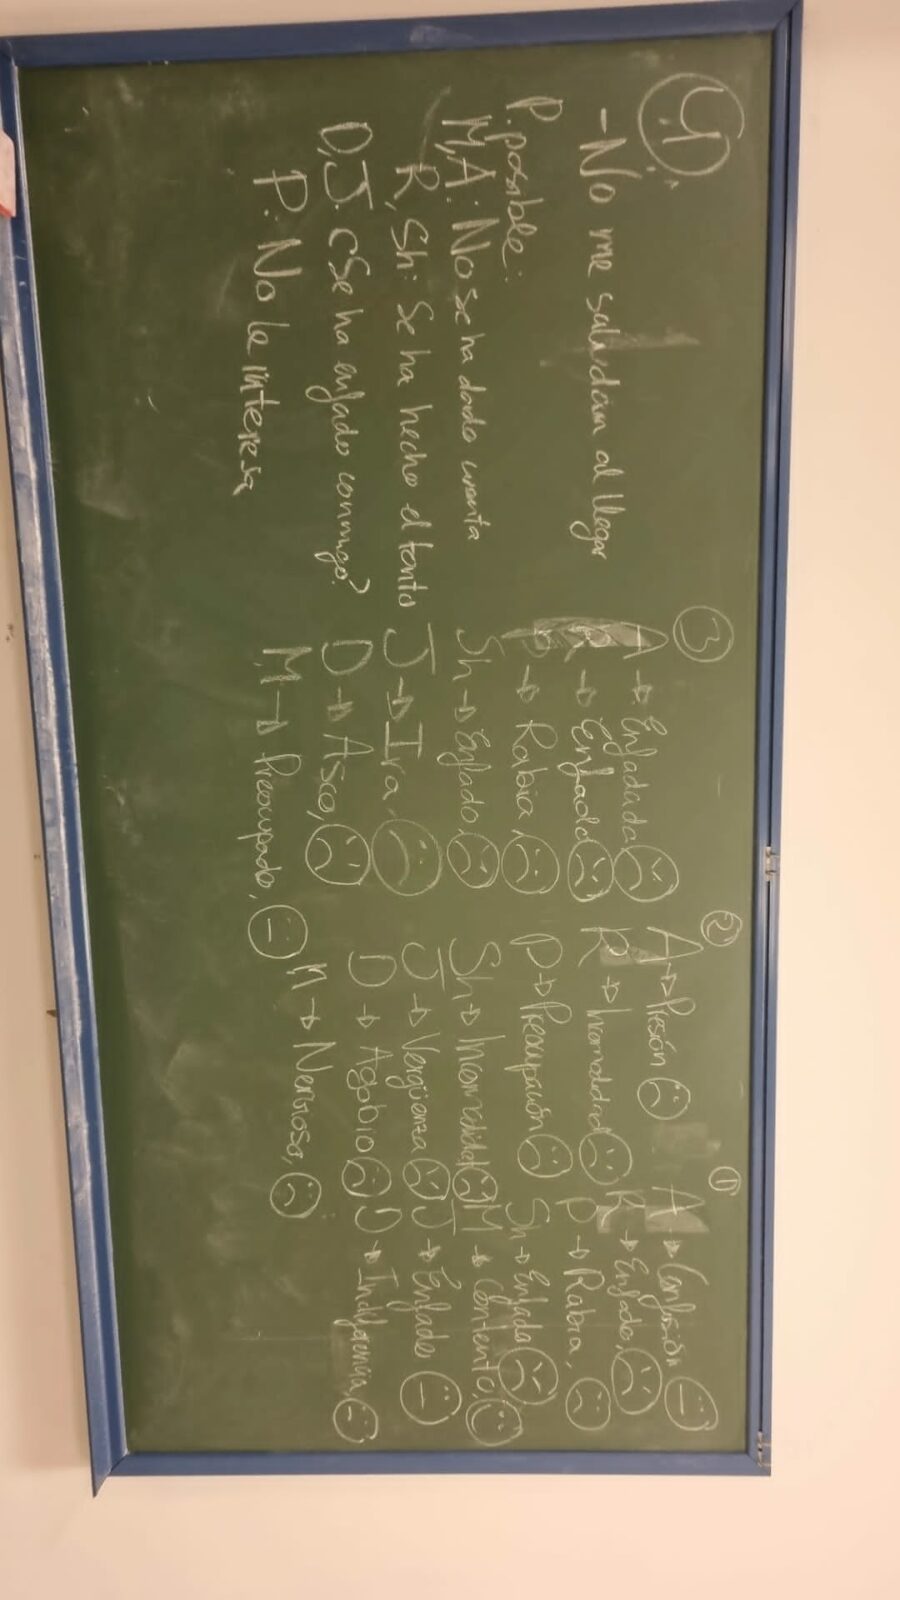 4
- No me saludan al llegar
P. posible:
M, A: No se ha dado cuenta
R, Sh: Se ha hecho el tonto
D, J: ¿Se ha enfado conmigo?
P: No le interesa
3
A → Enfadada,
R → Enfado
P → Rabia,
Sh → Enfado,
J → Ira
D → Asco,
M → Preocupado,
2
A → Presión
R → Incomodidad
P → Preocupación
Sh → Incomodidad
J → Vergüenza
D → Agobio
M → Nervioso,
1
A → Confusión
R → Enfado,
P → Rabia,
Sh → Enfado
M → Contento,
J → Enfado
D → Indiferencia,